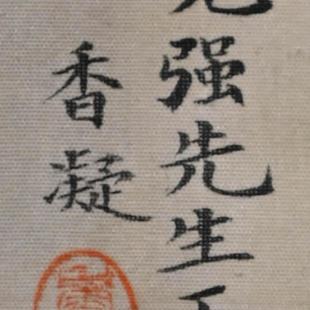 强先生
香凝